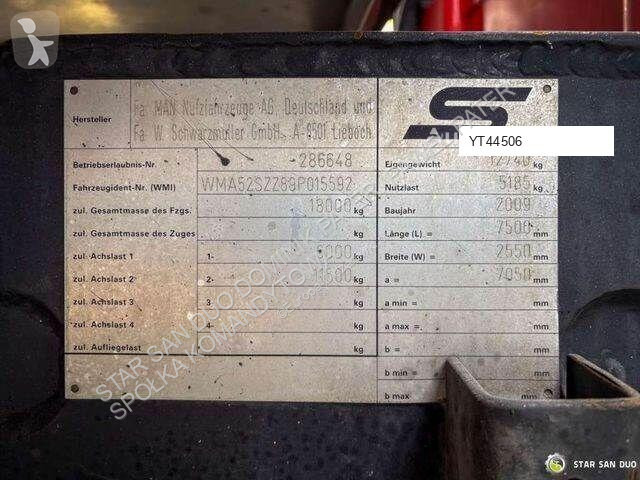 Hersteller
Fa. MAN Nutzfahrzeuge AG, Deutschland und
Fa. W. Schwarzmüller GmbH., A-8501 Lieboch
S
YT44506
Betriebserlaubnis-Nr. 286648
Fahrzeugident-Nr. (WMI) WMA52SZZ89P015592
zul. Gesamtmasse des Fzgs. 18000 kg
zul. Gesamtmasse des Zuges kg
zul. Achslast 1 1- kg
zul. Achslast 2 2- 11500 kg
zul. Achslast 3 3 kg
zul. Achslast 4 4- kg
zul. Aufliegelast kg
Eigengewicht 12740 kg
Nutzlast 5185 kg
Baujahr 2009
Länge (L) = 7500 mm
Breite (W) = 2550 mm
a = 7050 mm
a min = mm
a max = mm
b = mm
b min = mm
b max
STAR SAN DUO